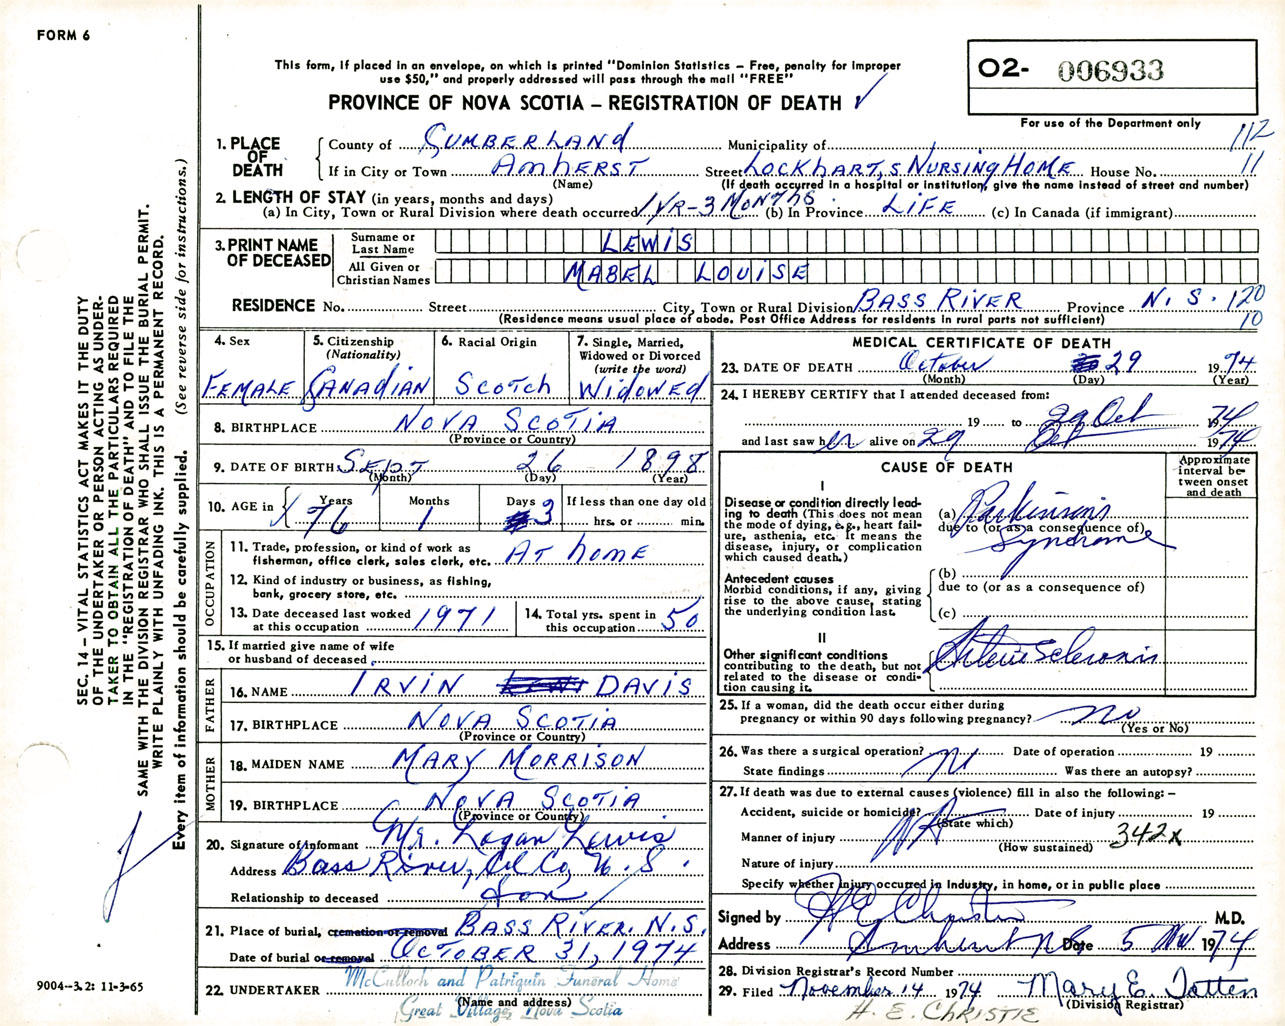 FORM 6
This form, if placed in an envelope, on which is printed "Dominion Statistics – Free, penalty for improper
use $50," and properly addressed will pass through the mail "FREE"
PROVINCE OF NOVA SCOTIA – REGISTRATION OF DEATH ✓
O2- 006933
For use of the Department only
112
1. PLACE OF DEATH
County of CUMBERLAND Municipality of
If in City or Town AMHERST Street LOCKHART,S NURSING HOME House No. 11
(Name) (If death occurred in a hospital or institution, give the name instead of street and number)
2. LENGTH OF STAY (in years, months and days)
(a) In City, Town or Rural Division where death occurred 1 YR-3 MONTHS (b) In Province LIFE (c) In Canada (if immigrant)
3. PRINT NAME OF DECEASED
Surname or Last Name LEWIS
All Given or Christian Names MABEL LOUISE
RESIDENCE No. Street City, Town or Rural Division BASS RIVER Province N. S. 120
(Residence means usual place of abode. Post Office Address for residents in rural parts not sufficient) 10
SEC. 14 – VITAL STATISTICS ACT MAKES IT THE DUTY
OF THE UNDERTAKER OR PERSON ACTING AS UNDER-
TAKER TO OBTAIN ALL THE PARTICULARS REQUIRED
IN THE "REGISTRATION OF DEATH" AND TO FILE THE
SAME WITH THE DIVISION REGISTRAR WHO SHALL ISSUE THE BURIAL PERMIT.
WRITE PLAINLY WITH UNFADING INK. THIS IS A PERMANENT RECORD.
Every item of information should be carefully supplied. (See reverse side for instructions.)
4. Sex FEMALE
5. Citizenship (Nationality) CANADIAN
6. Racial Origin SCOTCH
7. Single, Married, Widowed or Divorced (write the word) WIDOWED
8. BIRTHPLACE NOVA SCOTIA
(Province or Country)
9. DATE OF BIRTH SEPT 26 1898
(Month) (Day) (Year)
10. AGE in Years 76 Months 1 Days 3 If less than one day old
hrs. or min.
OCCUPATION
11. Trade, profession, or kind of work as
fisherman, office clerk, sales clerk, etc. AT HOME
12. Kind of industry or business, as fishing,
bank, grocery store, etc.
13. Date deceased last worked at this occupation 1971
14. Total yrs. spent in this occupation 50
15. If married give name of wife
or husband of deceased
FATHER
16. NAME IRVIN DAVIS
17. BIRTHPLACE NOVA SCOTIA
(Province or Country)
MOTHER
18. MAIDEN NAME MARY MORRISON
19. BIRTHPLACE NOVA SCOTIA
(Province or Country)
20. Signature of informant Mr. Logan Lewis
Address Bass River, Col Co, N. S.
Relationship to deceased Son
21. Place of burial, cremation or removal BASS RIVER. N.S.
Date of burial or removal OCTOBER 31, 1974
22. UNDERTAKER McCulloch and Patriquin Funeral Home
(Name and address)
Great Village, Nova Scotia
9004–3.2: 11-3-65
MEDICAL CERTIFICATE OF DEATH
23. DATE OF DEATH October 29 1974
(Month) (Day) (Year)
24. I HEREBY CERTIFY that I attended deceased from:
19 to 29 Oct 1974
and last saw her alive on 29 Oct 1974
CAUSE OF DEATH
Approximate interval between onset and death
I
Disease or condition directly lead-
ing to death (This does not mean
the mode of dying, e.g., heart fail-
ure, asthenia, etc. It means the
disease, injury, or complication
which caused death.)
(a) Parkinsons
due to (or as a consequence of)
Syndrome
Antecedent causes
Morbid conditions, if any, giving
rise to the above cause, stating
the underlying condition last.
(b)
due to (or as a consequence of)
(c)
II
Other significant conditions
contributing to the death, but not
related to the disease or condi-
tion causing it.
Arteriosclerosis
25. If a woman, did the death occur either during
pregnancy or within 90 days following pregnancy? no
(Yes or No)
26. Was there a surgical operation? Date of operation 19
State findings Was there an autopsy?
27. If death was due to external causes (violence) fill in also the following: –
Accident, suicide or homicide? Date of injury 19
(State which)
Manner of injury 342x
(How sustained)
Nature of injury
Specify whether injury occurred in Industry, in home, or in public place
Signed by H E Christie M.D.
Address Amherst NS Date 5 Nov 1974
28. Division Registrar's Record Number
29. Filed November 14 1974 Mary E. Totten
(Division Registrar)
H. E. CHRISTIE